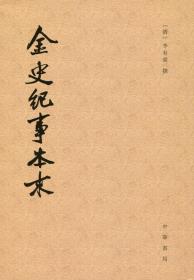 金史纪事本末
〔清〕李有棠 撰
中华书局